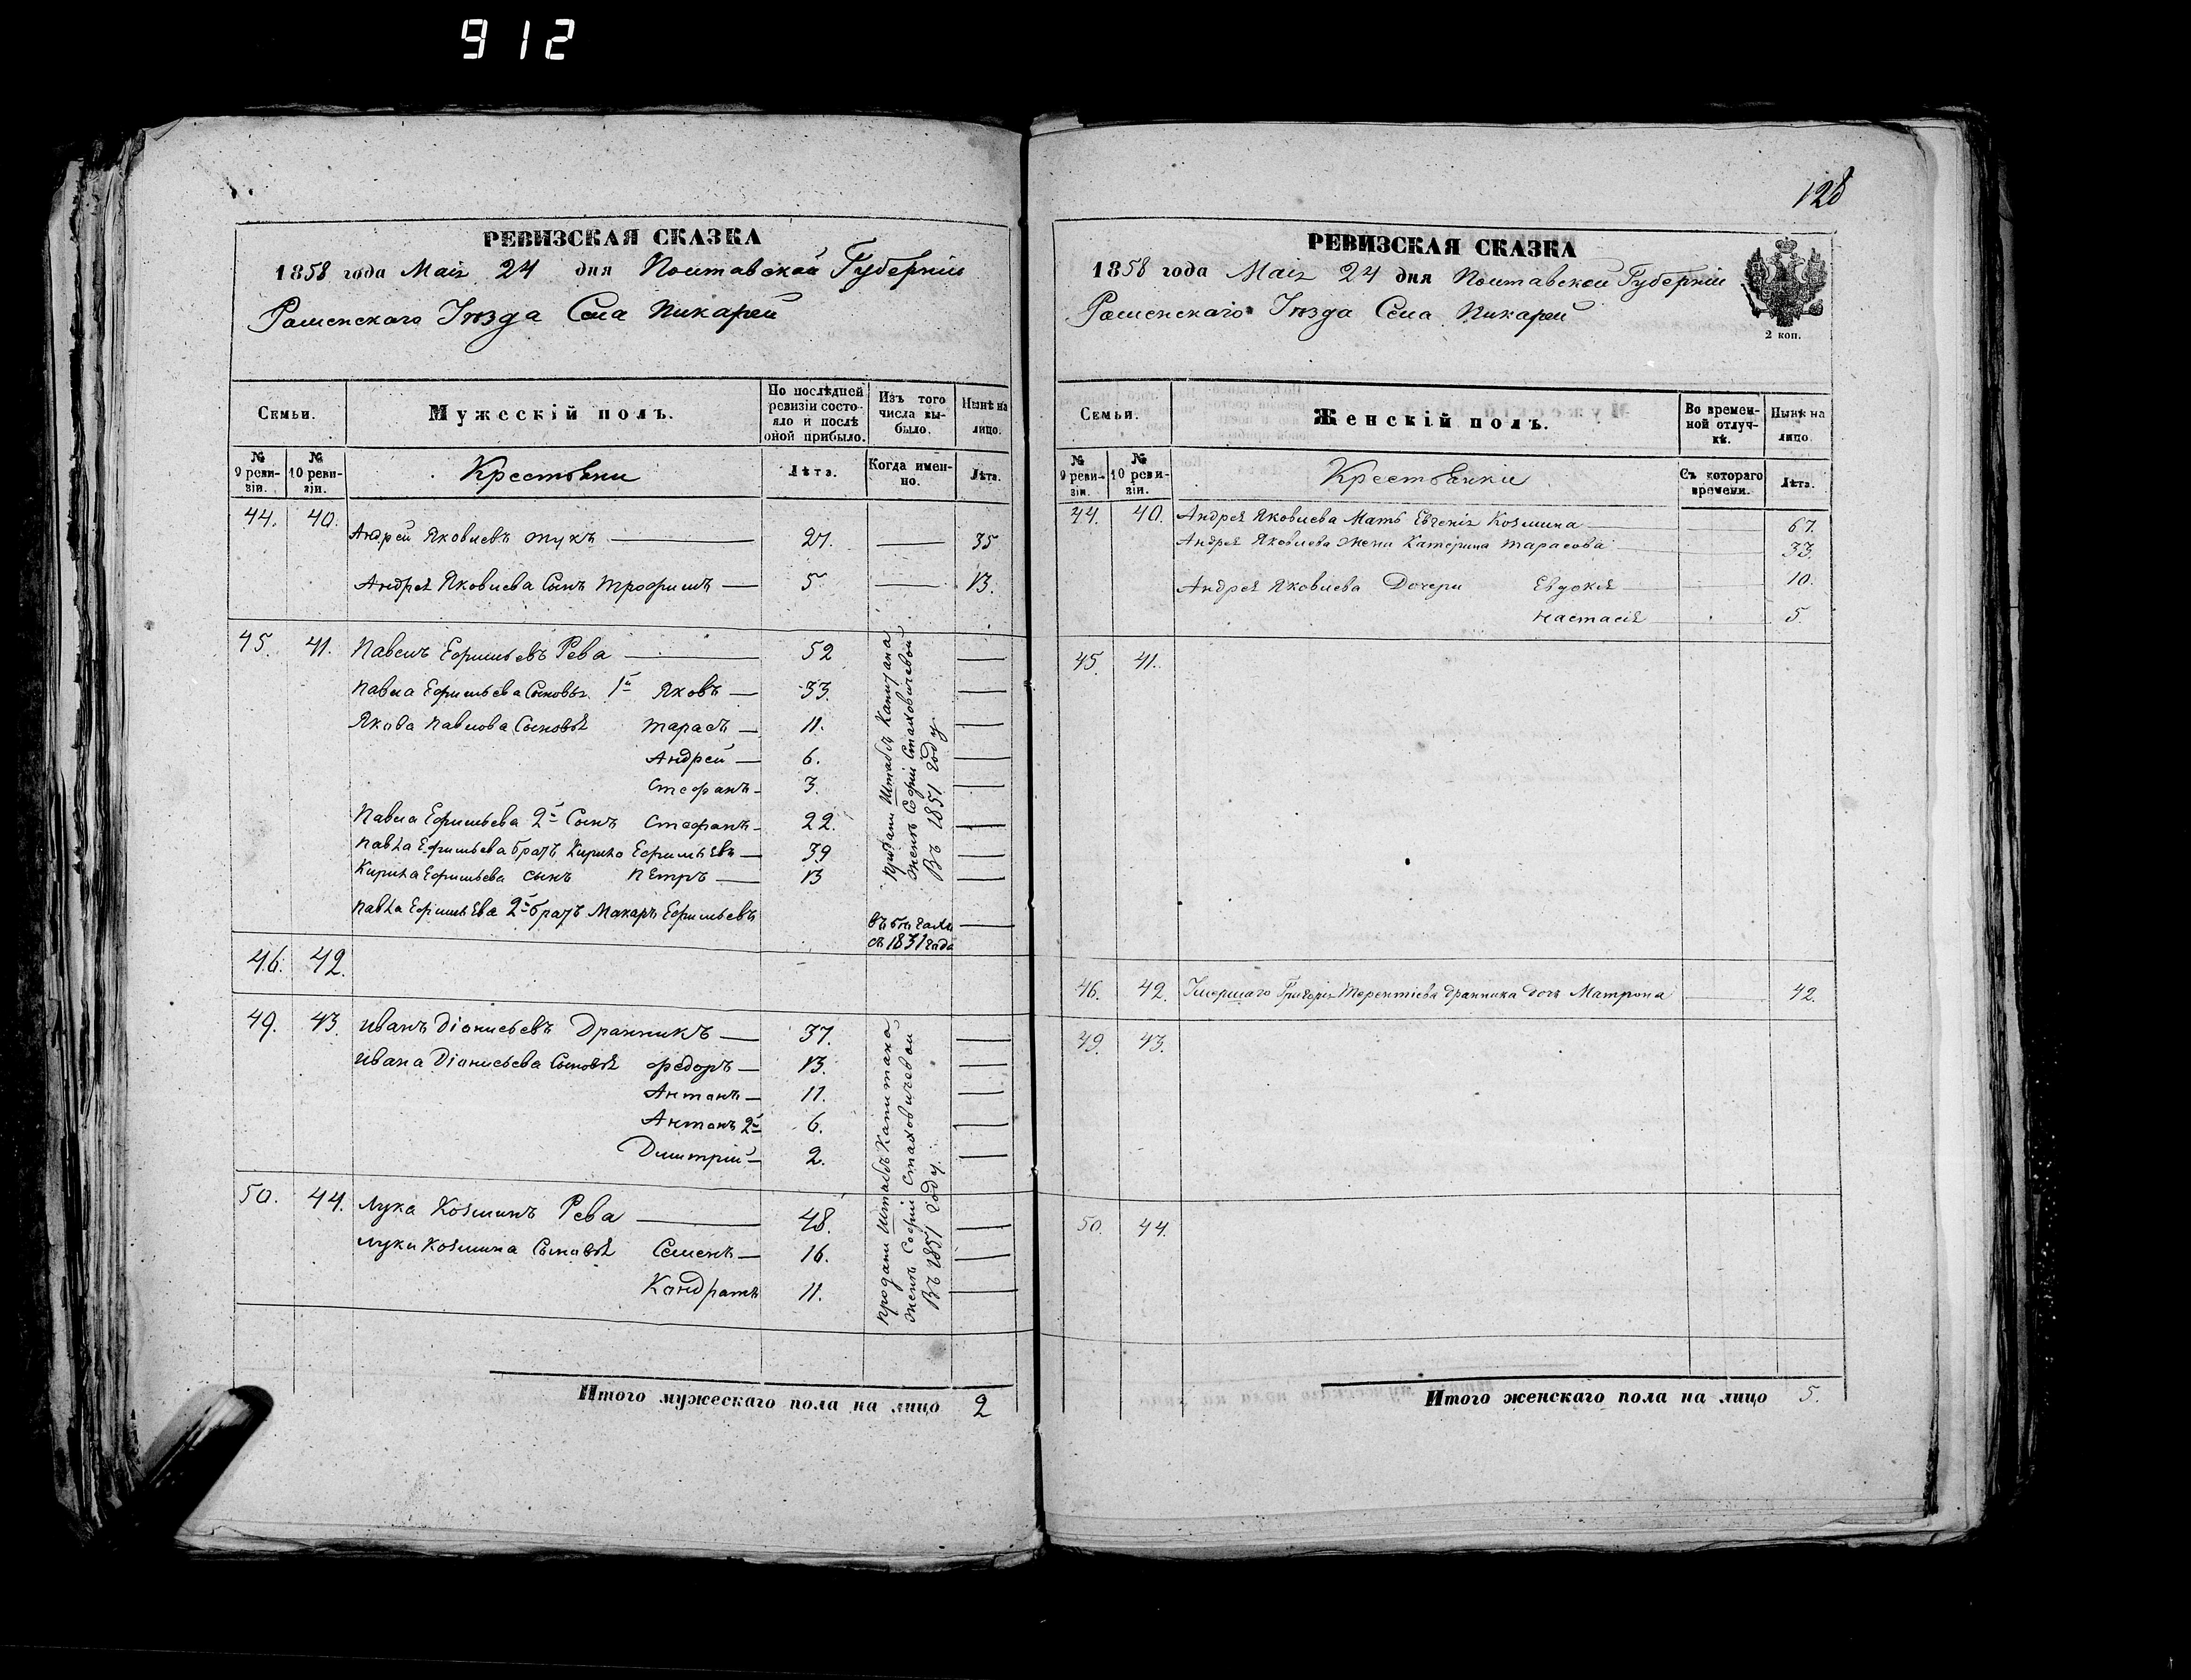 912
РЕВИЗСКАЯ СКАЗКА
1858 года Маія 24 дня Полтавской Губерніи
Роменскаго Уѣзда Села Пикарей
Семьи.
Мужескій полъ.
По послѣдней ревизіи состояло и послѣ оной прибыло.
Изъ того числа выбыло.
Нынѣ на лицо.
№ 9 ревизіи.
№ 10 ревизіи.
Крестьяни
Лѣта.
Когда именно.
Лѣта.
44. 40. Андрей Яковлевъ Жукъ 27. 35
Андрея Яковлева Сынъ Трофимъ 5 13.
45. 41. Павелъ Ефимьевъ Рева 52
Павла Ефимьева Сыновья 1й Яковъ 33.
Якова Павлова Сыновья Тарасъ 11.
Андрей 6.
Стефанъ 3.
Павла Ефимьева 2й Сынъ Стефанъ 22.
Павла Ефимьева братъ Кирило Ефимьевъ 39
Кирила Ефимьева сынъ Петръ 13
Павла Ефимьева 2й братъ Макаръ Ефимьевъ
Проданы Штабъ Капитана
Женѣ Софіи Стаховичевой
Въ 1851 году.
въ бѣгахъ
съ 1831 года
46. 42.
49. 43. Иванъ Діонисьевъ Дранникъ 37.
Ивана Діонисьева Сыновья Федоръ 13.
Антонъ 11.
Антонъ 2й 6.
Димитрій 2.
50. 44. Лука Козминъ Рева 48.
Луки Козмина Сыновья Семенъ 16.
Кондратъ 11.
Проданы Штабъ Капитана
Женѣ Софіи Стаховичевой
Въ 1851 году.
Итого мужескаго пола на лицо 2
128
РЕВИЗСКАЯ СКАЗКА
1858 года Маія 24 дня Полтавской Губерніи
Роменскаго Уѣзда Села Пикарей
2 коп.
Семьи.
Женскій полъ.
Во временной отлучкѣ.
Нынѣ на лицо
№ 9 ревизіи.
№ 10 ревизіи.
Крестьянки
Съ котораго времени.
Лѣта.
44. 40. Андрея Яковлева Мать Евгенія Козмина 67.
Андрея Яковлева Жена Катерина Тарасова 33.
Андрея Яковлева Дочери Евдокія 10.
Настасія 5.
45. 41.
46. 42. Умершаго Григорія Терентіева Дранника дочь Матрона 42.
49. 43.
50. 44.
Итого женскаго пола на лицо 5.